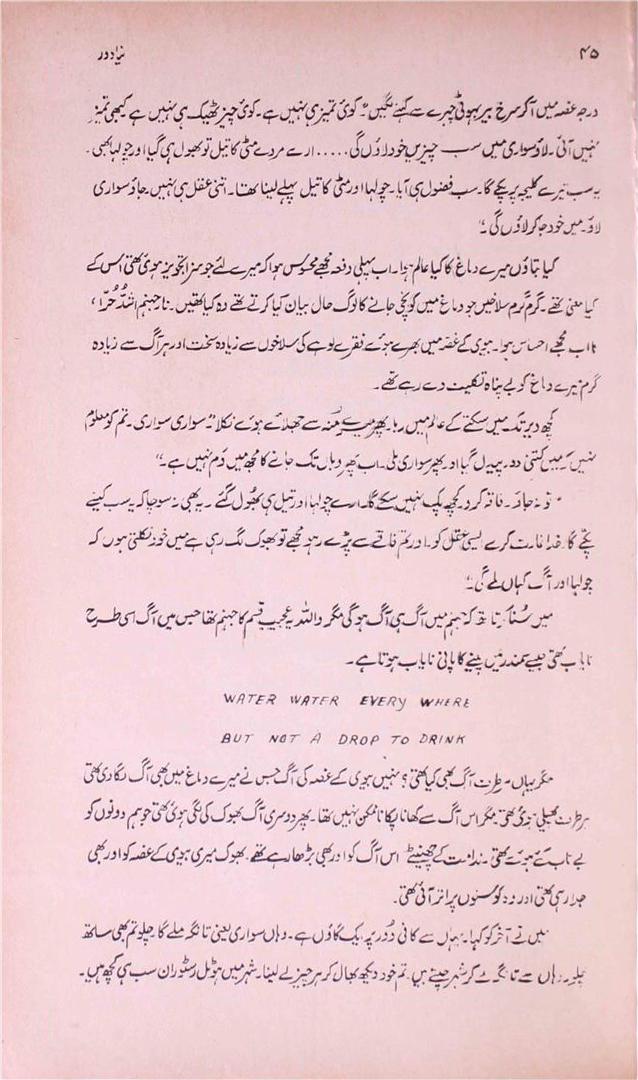 ۴۵ نیا دور
درجہ غصہ میں آ کر سرخ بیر بہوٹی چہرے سے کہنے لگیں "کوئی تمیز ہی نہیں ہے۔ کوئی چیز ٹھیک ہی نہیں ہے کبھی تمیز
نہیں آئی۔ لاؤ سواری میں سب چیزیں خود لاؤں گی ..... ارے مردے مٹی کا تیل تو بھول ہی گیا اور چولہا بھی۔
یہ سب تیرے کلیجہ پر پکے گا۔ سب فضول ہی آیا۔ چولہا اور مٹی کا تیل پہلے لینا تھا۔ اتنی عقل ہی نہیں جاؤ سواری
لاؤ۔ میں خود جا کر لاؤں گی۔"
کیا بتاؤں میرے دماغ کا کیا عالم ہوا۔ اب پہلی دفعہ مجھے محسوس ہوا کہ میرے لئے جو سزا تجویز ہوئی تھی اس کے
کیا معنی تھے۔ گرم گرم سلاخیں جو دماغ میں کونچی جانے کا لوگ حال بیان کیا کرتے تھے وہ کیا تھیں۔ نار جہنم اشد حرّا،
کا اب مجھے احساس ہوا۔ بیوی کے غصہ میں بھرے ہوئے فقرے لوہے کی سلاخوں سے زیادہ سخت اور ہر آگ سے زیادہ
گرم میرے دماغ کو بے پناہ تکلیف دے رہے تھے۔
کچھ دیر تک میں سکتے کے عالم میں رہا۔ پھر میرے منہ سے جھلائے ہوئے نکلا "سواری سواری۔ تم کو معلوم
نہیں میں کتنی دور پیدل گیا اور پھر سواری ملی۔ اب پھر وہاں تک جانے کا مجھ میں دم نہیں ہے۔"
"تو نہ جاؤ۔ فاقہ کرو۔ کچھ پک نہیں سکے گا۔ ارے چولہا اور تیل ہی بھول گئے۔ یہ بھی نہ سوچا کہ یہ سب کیسے
پکے گا۔ خدا غارت کرے ایسی عقل کو۔ اور تم فاقے سے پڑے رہو مجھے تو بھوک لگ رہی ہے میں خود نکلتی ہوں کہ
چولہا اور آگ کہاں ملے گی۔"
میں سُنا کرتا تھا کہ جہنم میں آگ ہی آگ ہوگی مگر واللہ یہ عجیب قسم کا جہنم تھا جس میں آگ اسی طرح
نایاب تھی جیسے سمندر میں پینے کا پانی نایاب ہوتا ہے۔
WATER WATER EVERY WHERE
BUT NOT A DROP TO DRINK
مگر یہاں ہر طرف آگ بھی کیا تھی؟ نہیں بیوی کے غصہ کی آگ جس نے میرے دماغ میں بھی آگ لگا دی تھی
ہر طرف پھیلی ہوئی تھی مگر اس آگ سے کھانا پکانا ممکن نہیں تھا۔ پھر دوسری آگ بھوک کی لگی ہوئی تھی جو ہم دونوں کو
بے تاب کئے ہوئے تھی۔ ندامت کے چھینٹے اس آگ کو اور بھی بڑھا رہے تھے۔ بھوک میری بیوی کے غصہ کو اور بھی
جلا رہی تھی اور وہ کوسنوں پر اتر آئی تھی۔
میں نے آخر کو کہا۔ یہاں سے کافی دور پر ایک گاؤں ہے۔ وہاں سواری یعنی تانگہ ملے گا۔ چلو تم بھی ساتھ
چلو۔ وہاں سے تانگہ لے کر شہر چلتے ہیں۔ تم خود دیکھ بھال کر ہر چیز لے لینا۔ شہر میں ہوٹل رسٹوران سب ہی کچھ ہیں۔